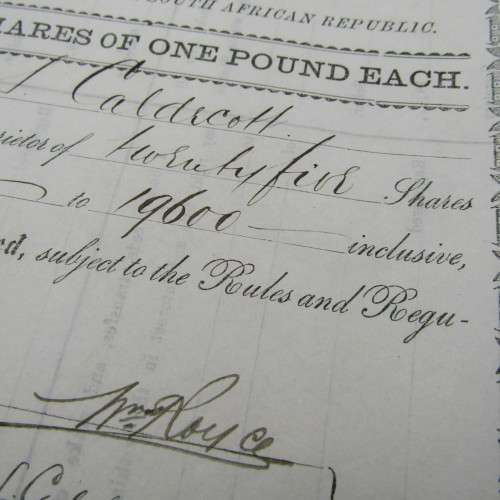 SOUTH AFRICAN REPUBLIC.
SHARES OF ONE POUND EACH.
Caldecott
twenty five Shares
to 19600 inclusive,
subject to the Rules and Regu-
Wm Royce